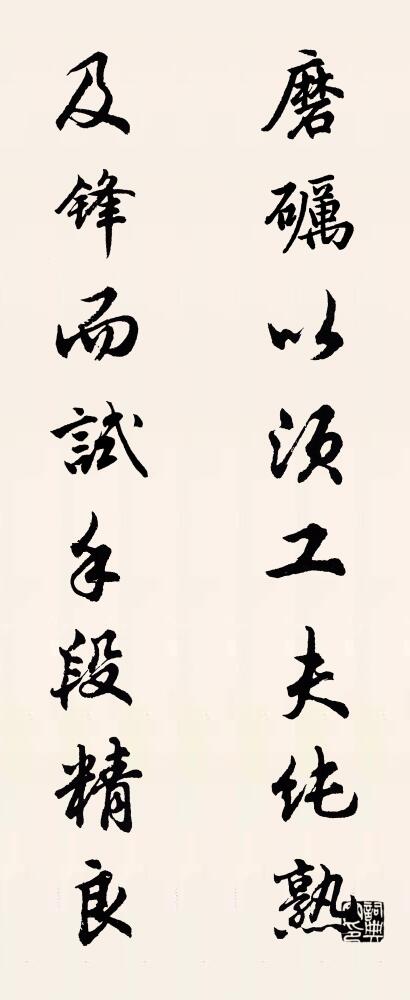 磨礪以須工夫纯熟
及鋒而試手段精良